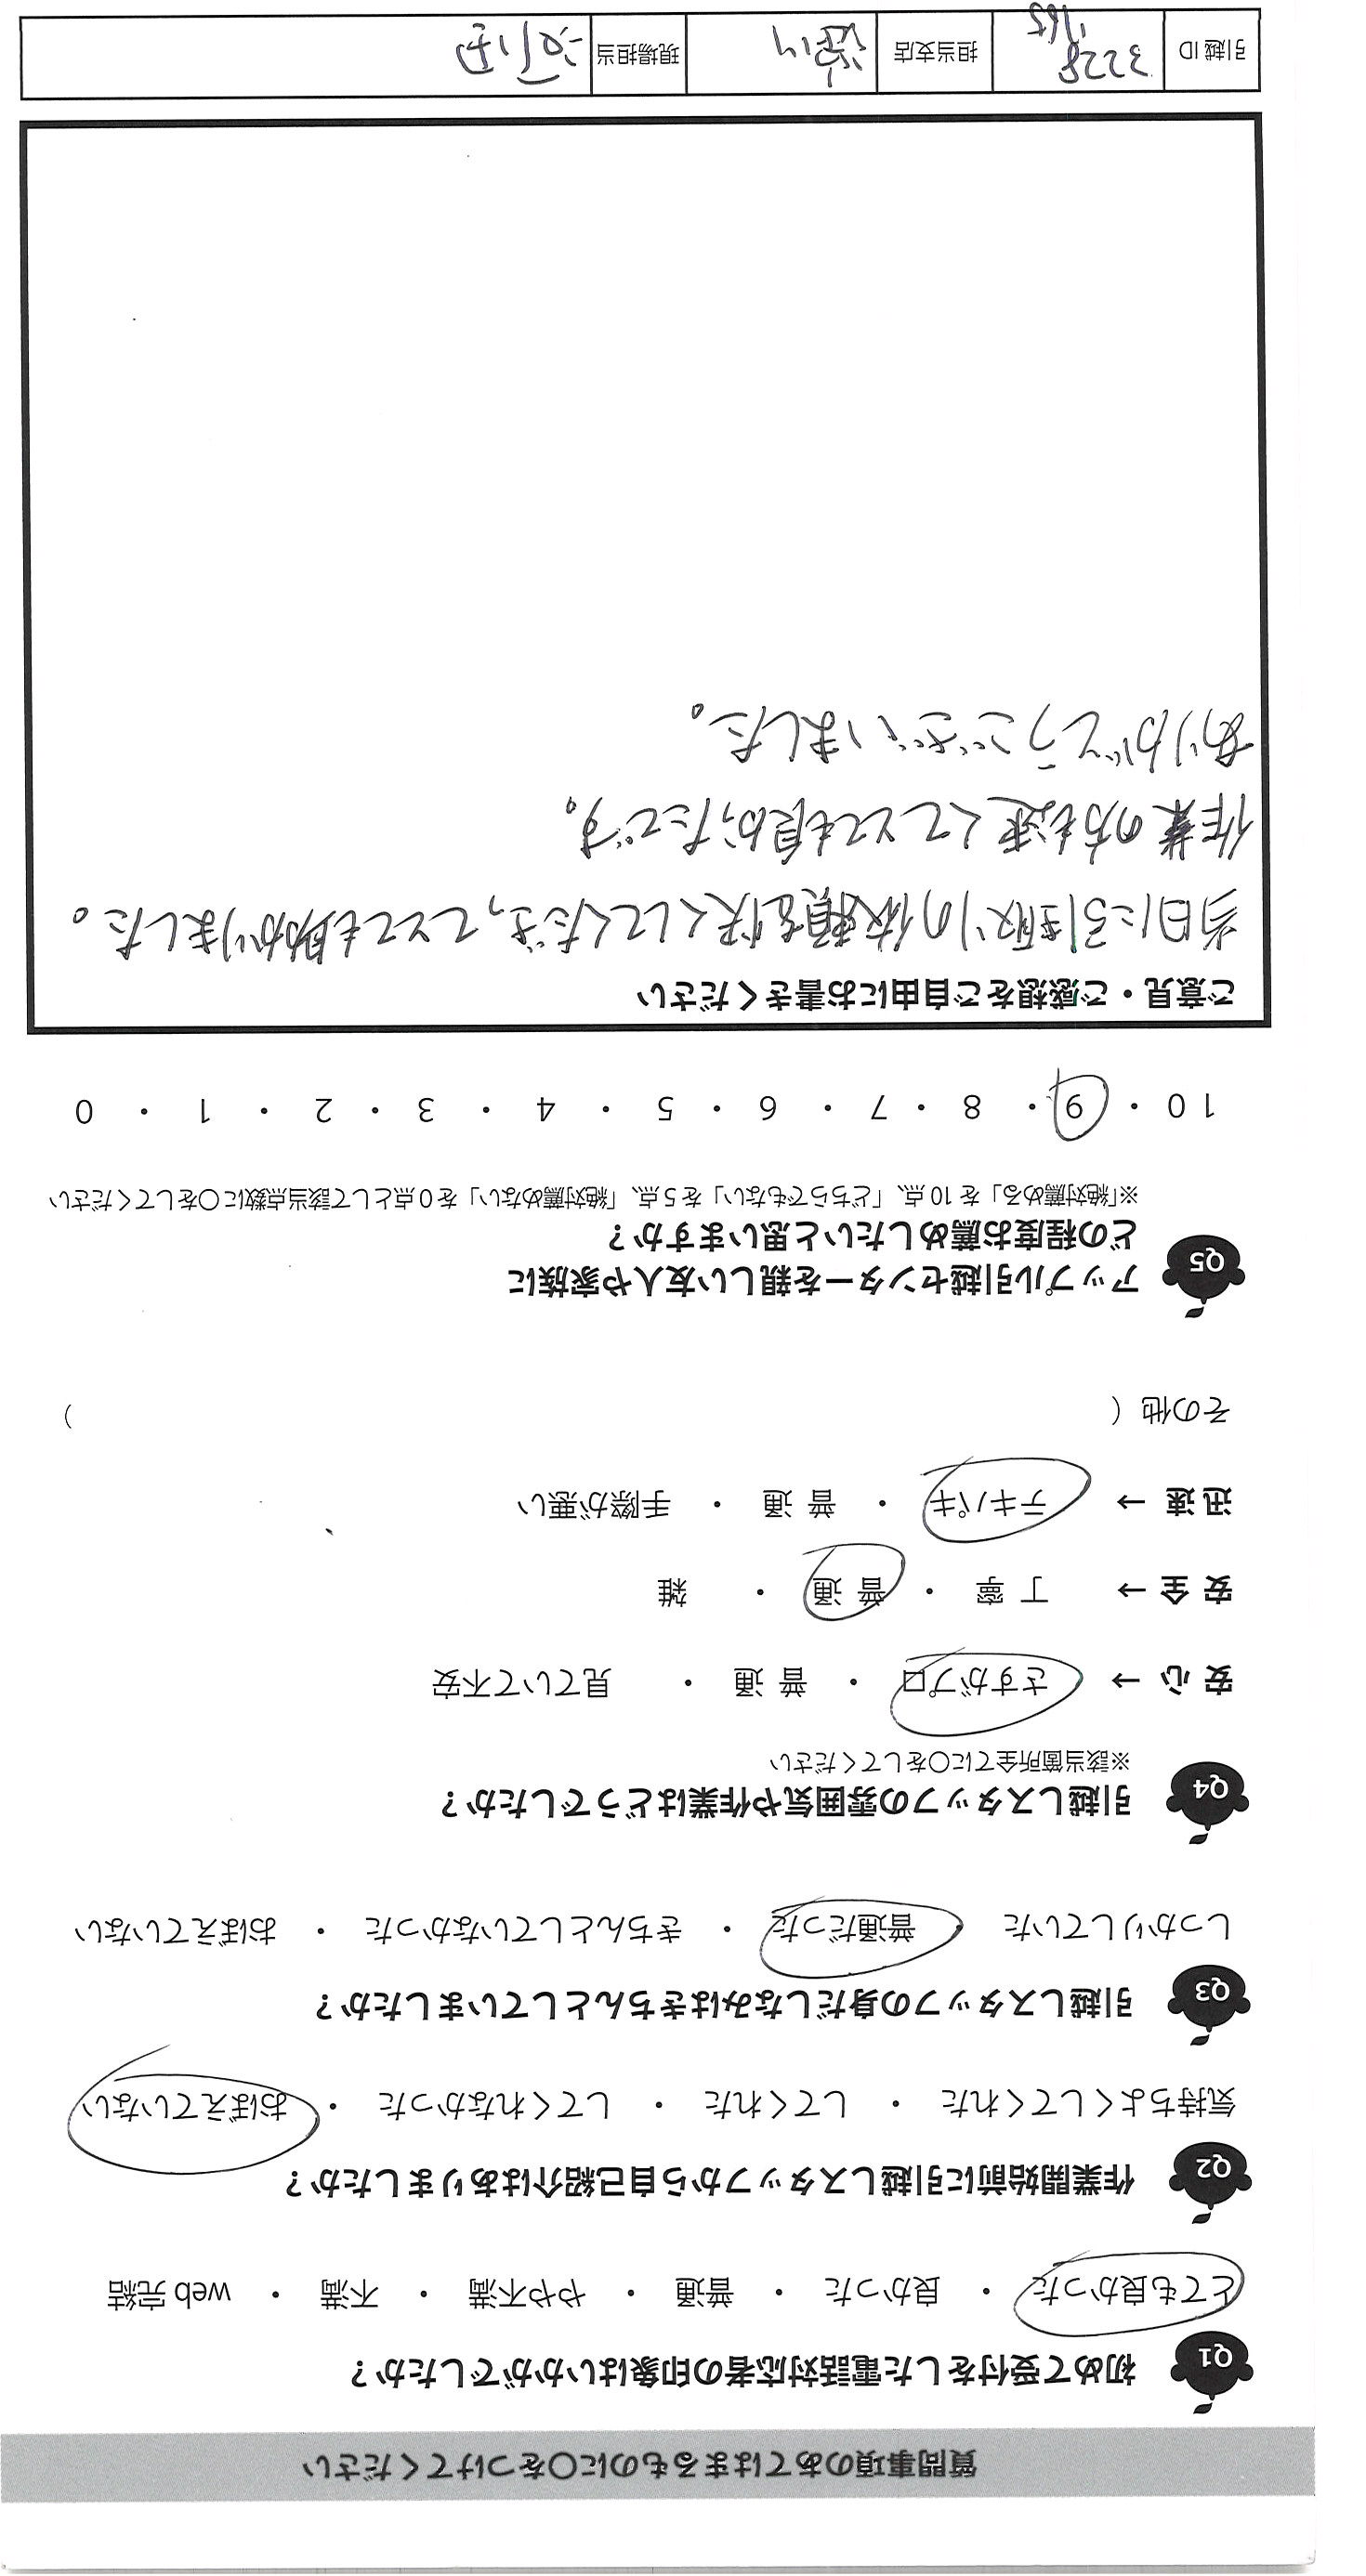 質問事項のあてはまるものに〇をつけてください
Q1 初めて受付をした電話対応者の印象はいかがでしたか？
とても良かった ・ 良かった ・ 普通 ・ やや不満 ・ 不満 ・ web 完結
Q2 作業開始前に引越しスタッフから自己紹介はありましたか？
気持ちよくしてくれた ・ してくれた ・ してくれなかった ・ おぼえていない
Q3 引越しスタッフの身だしなみはきちんとしていましたか？
しっかりしていた 普通だった ・ きちんとしていなかった ・ おぼえていない
Q4 引越しスタッフの雰囲気や作業はどうでしたか？
※該当箇所全てに〇をしてください
安 心 → さすがプロ ・ 普 通 ・ 見ていて不安
安 全 → 丁 寧 ・ 普 通 ・ 雑
迅 速 → テキパキ ・ 普 通 ・ 手際が悪い
その他（ ）
Q5 アップル引越センターを親しい友人や家族に
どの程度お薦めしたいと思いますか？
※「絶対薦める」を 10 点、「どちらでもない」を 5 点、「絶対薦めない」を 0 点として該当点数に〇をしてください
10 ・ 9 ・ 8 ・ 7 ・ 6 ・ 5 ・ 4 ・ 3 ・ 2 ・ 1 ・ 0
ご意見・ご感想をご自由にお書きください
当日に引き取りの依頼を快くしてくださってとても助かりました。
作業の方も速くてとても良かったです。
ありがとうございました。
引越 ID 3228 担当支店 現場担当